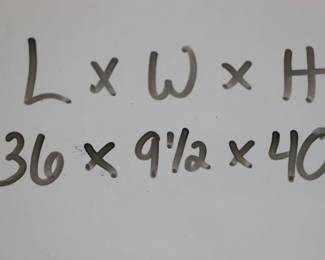 L x W x H
36 x 9 1/2 x 40